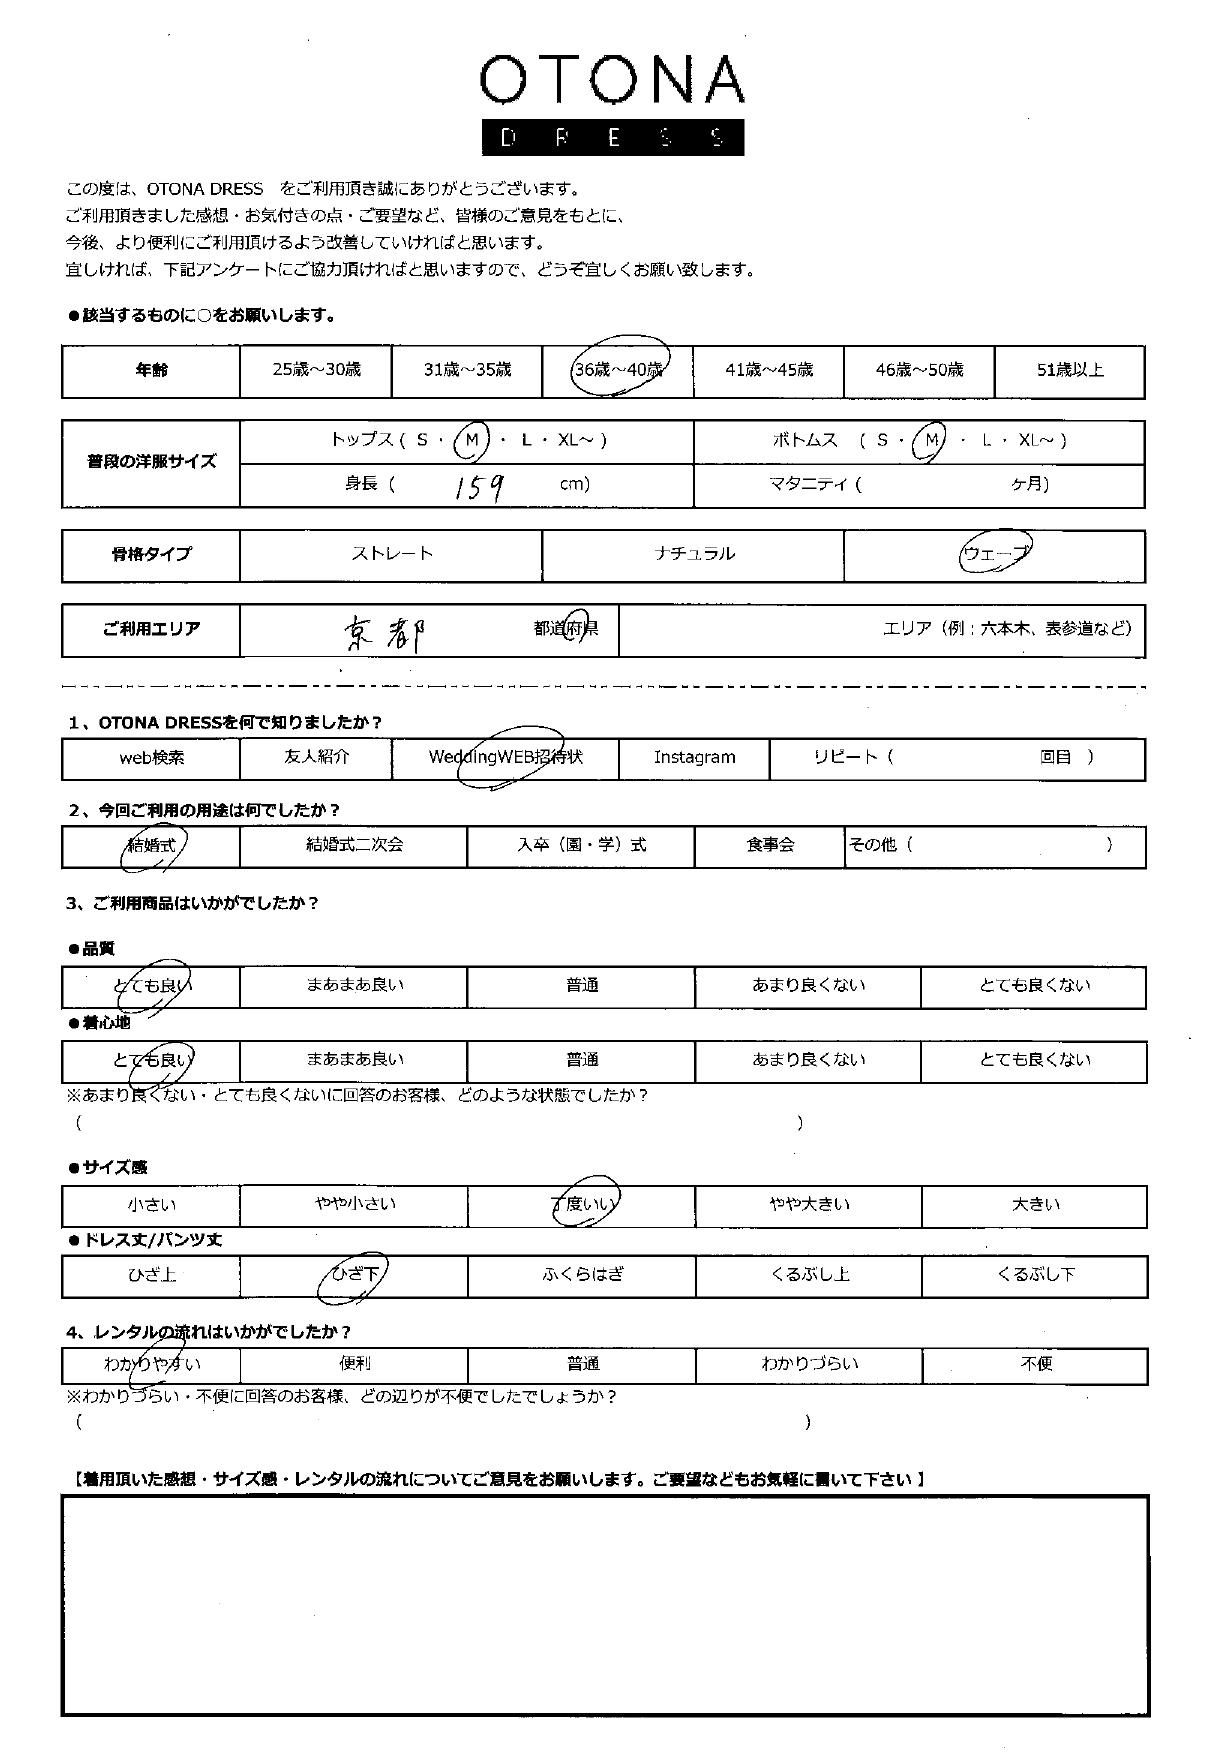 OTONA
DRESS
この度は、OTONA DRESS　をご利用頂き誠にありがとうございます。
ご利用頂きました感想・お気付きの点・ご要望など、皆様のご意見をもとに、
今後、より便利にご利用頂けるよう改善していければと思います。
宜しければ、下記アンケートにご協力頂ければと思いますので、どうぞ宜しくお願い致します。
●該当するものに○をお願いします。
年齢 25歳～30歳 31歳～35歳 36歳～40歳 41歳～45歳 46歳～50歳 51歳以上
普段の洋服サイズ トップス ( S ・ M ・ L ・ XL～ ) ボトムス ( S ・ M ・ L ・ XL～ )
身長 ( 159 cm) マタニティ ( ケ月)
骨格タイプ ストレート ナチュラル ウェーブ
ご利用エリア 京都 都道府県 エリア（例：六本木、表参道など）
1、OTONA DRESSを何で知りましたか？
web検索 友人紹介 WeddingWEB招待状 Instagram リピート ( 回目 )
2、今回ご利用の用途は何でしたか？
結婚式 結婚式二次会 入卒（園・学）式 食事会 その他 ( )
3、ご利用商品はいかがでしたか？
●品質
とても良い まあまあ良い 普通 あまり良くない とても良くない
●着心地
とても良い まあまあ良い 普通 あまり良くない とても良くない
※あまり良くない・とても良くないに回答のお客様、どのような状態でしたか？
( )
●サイズ感
小さい やや小さい 丁度いい やや大きい 大きい
●ドレス丈/パンツ丈
ひざ上 ひざ下 ふくらはぎ くるぶし上 くるぶし下
4、レンタルの流れはいかがでしたか？
わかりやすい 便利 普通 わかりづらい 不便
※わかりづらい・不便に回答のお客様、どの辺りが不便でしたでしょうか？
( )
【着用頂いた感想・サイズ感・レンタルの流れについてご意見をお願いします。ご要望などもお気軽に書いて下さい 】